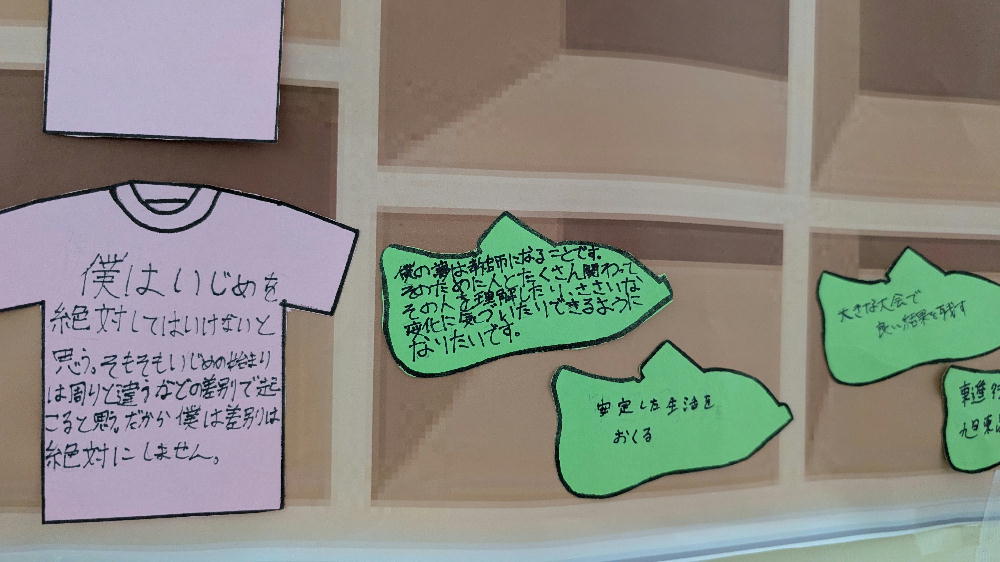 僕はいじめを
絶対してはいけないと
思う。そもそもいじめの始まり
は周りと違うなどの差別で起
こると思う。だから僕は差別は
絶対にしません。
僕の夢は教師になることです。
そのために人とたくさん関わって
その人を理解したり、ささいな
変化に気づいたりできるように
なりたいです。
安定した生活を
おくる
大きな大会で
良い結果を残す
東進
旭東